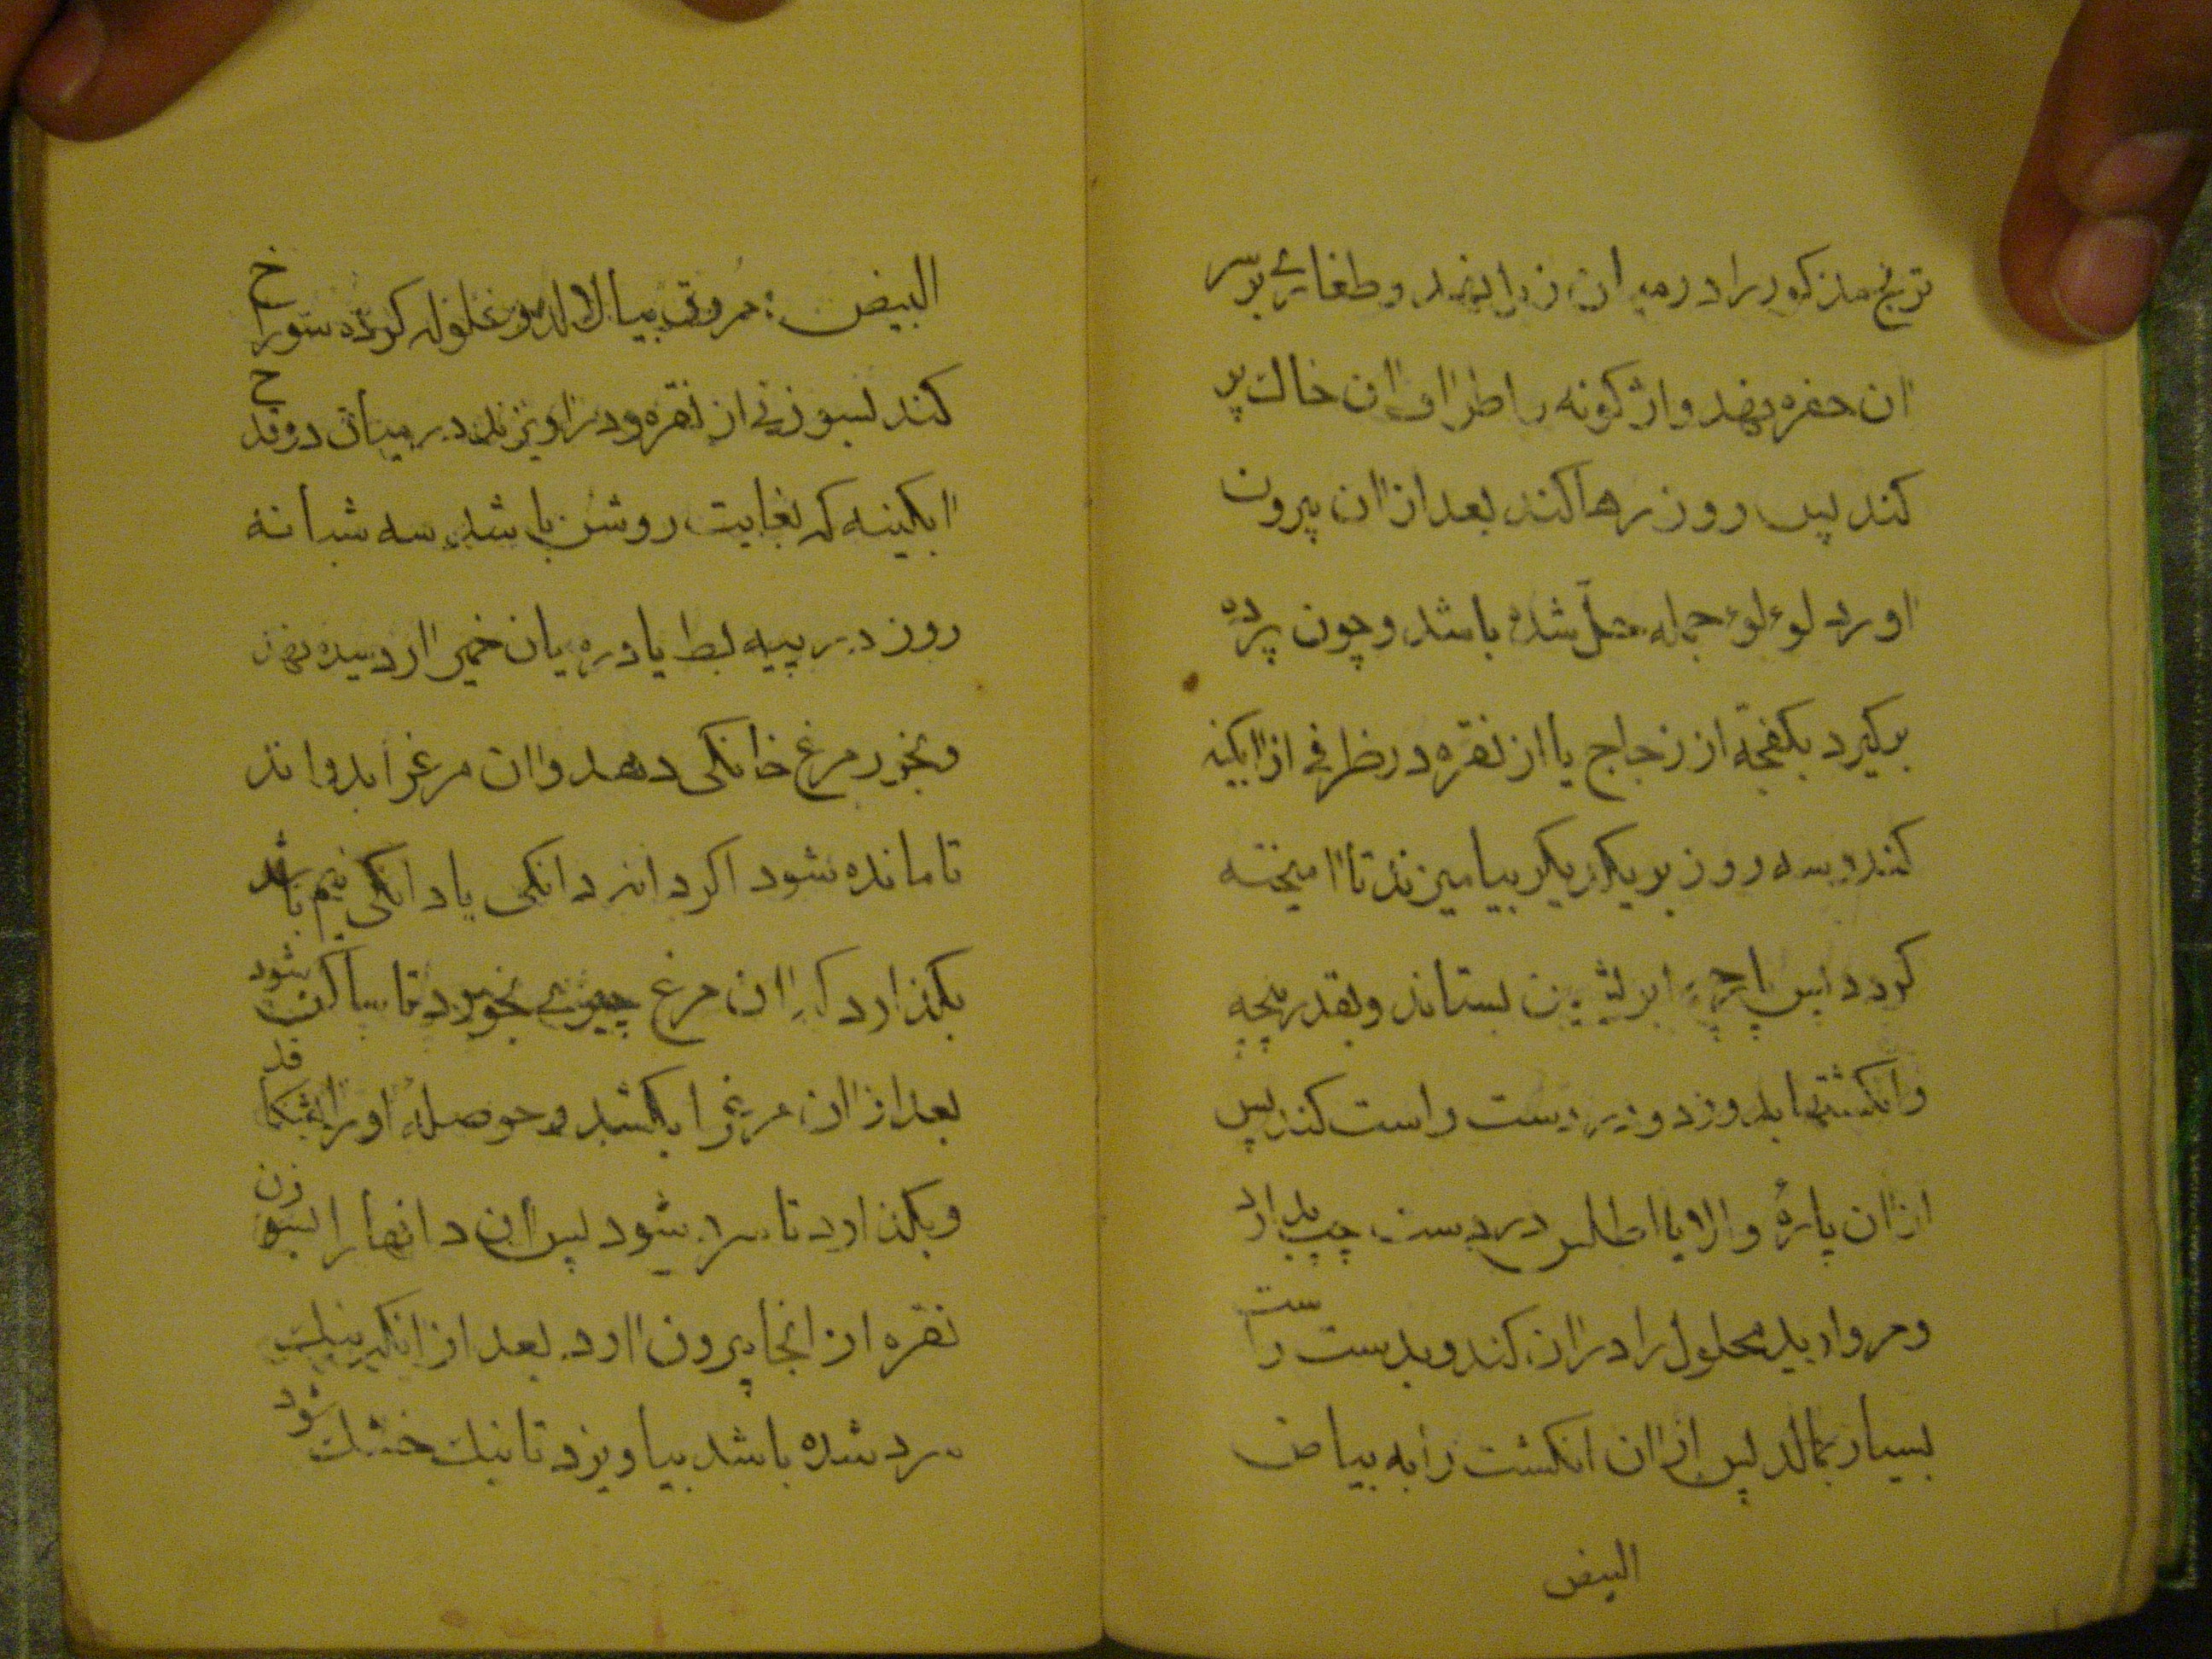 ترنج مذکور را در میان زرا بنهد و طغایٔے بر سر
ان حفره نهد واژکونه و اطراف ان خاك پر
کند پس روز رها کند بعد از ان پیرون
اورد لوٴلوٴ جمله حلّ شده باشد و چون پرده
برکیرد بکفچهٔ از زجاج یا از نقره در ظرفی از ابکینه
کند و سه روز بر یکدیکر بیامیزند تا امیخته
کردد پس پارچهٔ ابریشمین بستاند و بقدر پنجه
وانکشتها بدوزد و زیر دست راست کند پس
از ان پارهٔ والا یا اطلس در دست چپ بدارد
و مروارید محلول را در ان کند و بدست راست
بسیار بمالد پس از ان انکشت را به بیاض
البیض
البیض مروق بیالاید و غلوله کرده سوراخ
کند بسوزنی از نقره و در اویزند در میان دو قدح
ابکینه که بغایت روشن باشد سه شبانه
روز در پیه بط یا در میان خمیر ارد میده نهد
و بخورد مرغ خانکی دهد و ان مرغرا بدواند
تا مانده شود اکر دانه دانکی یا دانکی نیم باشد
بکذارد که ان مرغ چیزے بخورد تا ساکن شود
بعد از ان مرغ را بکشد و حوصلهٔ او را بشکافد
و بکذارد تا سرد شود پس ان دانها را بسوزن
نقره از انجا پیرون ارد بعد از انکه نیك
سرد شده باشد بیاویزد تا نیك خشك شود